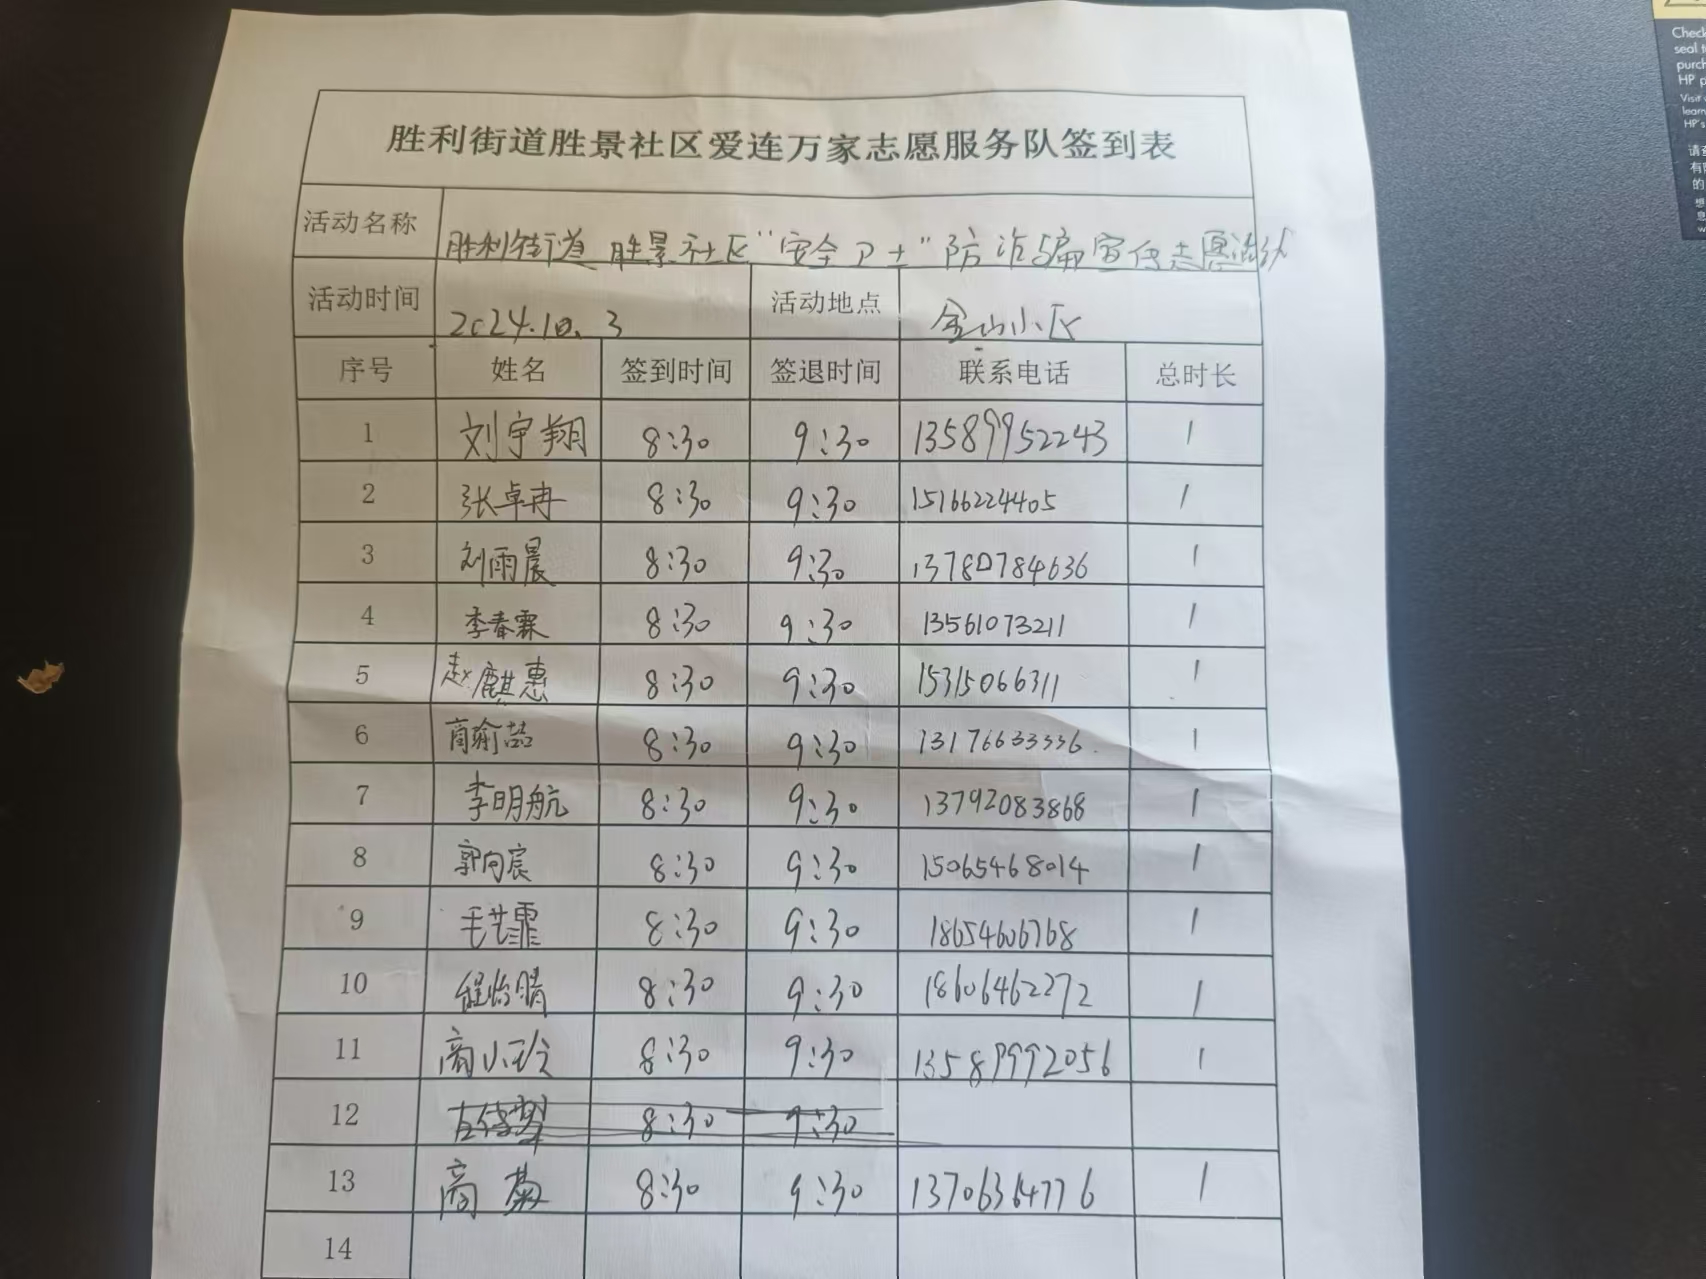 胜利街道胜景社区爱连万家志愿服务队签到表
活动名称 胜利街道胜景社区"安全卫士"防诈骗宣传志愿活动
活动时间 2024.10.3 活动地点 金山小区
序号 姓名 签到时间 签退时间 联系电话 总时长
1 刘宇翔 8:30 9:30 13589952243 1
2 张卓冉 8:30 9:30 15166224405 1
3 刘雨晨 8:30 9:30 13780784636 1
4 李春霖 8:30 9:30 13561073211 1
5 赵麒惠 8:30 9:30 15315066311 1
6 商俞喆 8:30 9:30 13176633336 1
7 李明航 8:30 9:30 13792083868 1
8 郭向宸 8:30 9:30 15065468014 1
9 毛艺霏 8:30 9:30 18654606768 1
10 程怡晴 8:30 9:30 18606462272 1
11 商小玲 8:30 9:30 13589992056 1
12 8:30 9:30
13 商菊 8:30 9:30 13706364776 1
14
Check
seal t
purch
HP p
Visit
learn
HP's
请
有
的
想
息
w